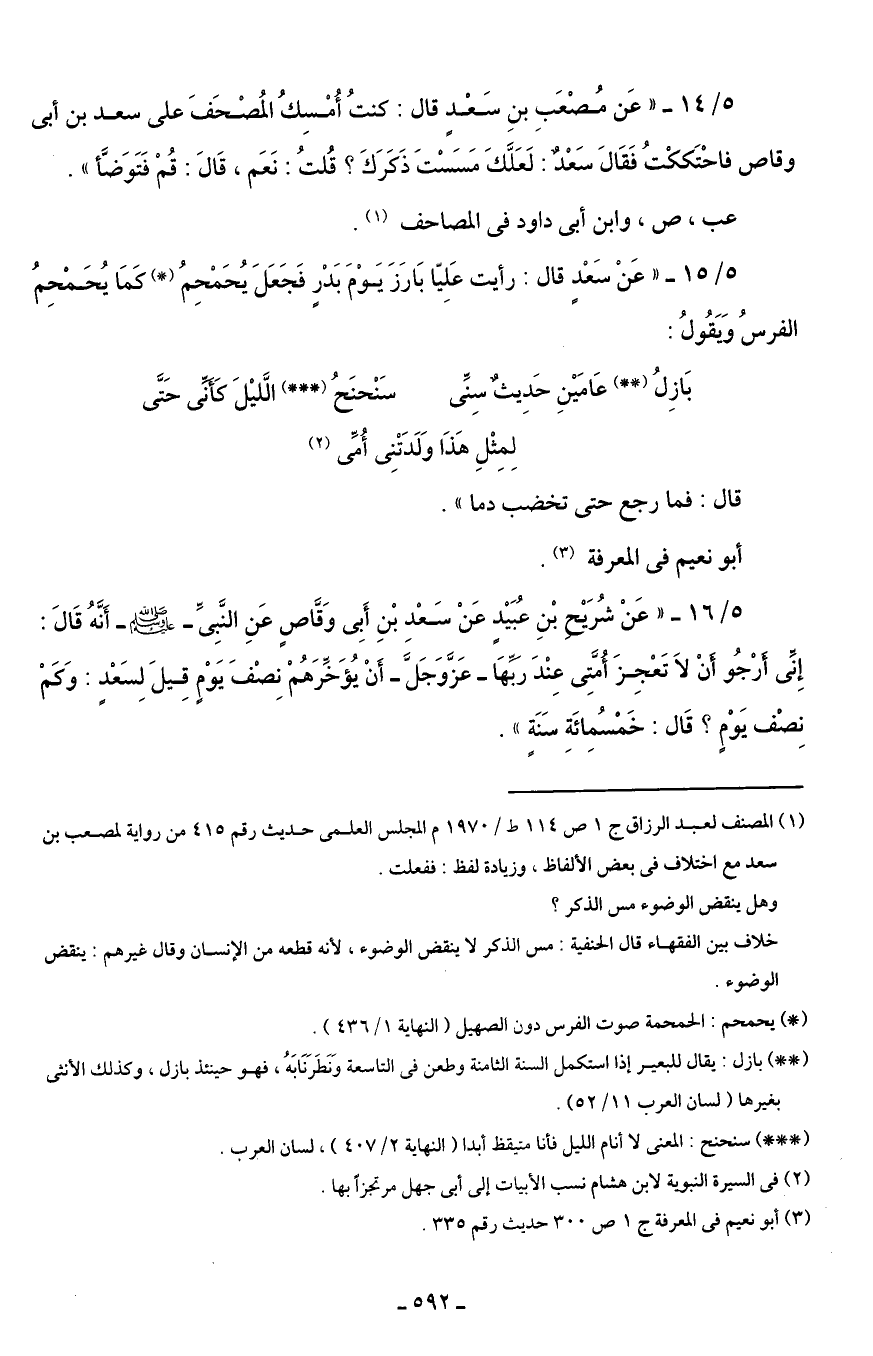 ٥/ ١٤ ـ « عَن مُصْعَبِ بنِ سَعْدٍ قال : كنتُ أُمْسِكُ المُصْحَفَ على سعد بن أبى
وقاص فاحْتَككْتُ فَقَالَ سَعْدٌ : لَعَلَّكَ مَسَسْتَ ذَكَرَكَ ؟ قُلتُ : نَعَم ، قَالَ : قُمْ فَتَوَضَّأ » .
عب ، ص ، وابن أبى داود فى المصاحف (١) .
٥/ ١٥ ـ « عَنْ سَعْدٍ قال : رأيت عَلِيّا بَارَزَ يَوْمَ بَدْرٍ فَجَعَلَ يُحَمْحِمُ (*) كَمَا يُحَمْحِمُ
الفرسُ وَيَقُولُ :
بَازِلُ (**) عَامَيْنِ حَدِيثٌ سِنِّى سَنْحنَحُ (***) الَّليْلَ كَأَنِّى حَتَّى
لِمِثْلِ هَذَا وَلَدَتْنِى أُمِّى (٢)
قال : فما رجع حتى تخضب دما » .
أبو نعيم فى المعرفة (٣) .
٥/ ١٦ ـ « عَنْ شُرَيْحِ بْنِ عُبَيْدٍ عَنْ سَعْدِ بْنِ أَبِى وَقَّاصٍ عَنِ النَّبِىِّ ـ ﷺ ـ أَنَّهُ قَالَ :
إِنِّى أَرْجُو أَنْ لاَ تَعْجِزَ أُمَّتِى عِنْدَ رَبِّهَا ـ عَزَّوَجَلَّ ـ أَنْ يُؤَخِّرَهُمْ نِصْفَ يَوْمٍ قِيلَ لِسَعْدٍ : وَكَمْ
نِصْف يَوْمٍ ؟ قَالَ : خَمْسُمِائَةِ سَنَةٍ » .
(١) المصنف لعبد الرزاق ج ١ ص ١١٤ ط / ١٩٧٠ م المجلس العلمى حديث رقم ٤١٥ من رواية لمصعب بن
سعد مع اختلاف فى بعض الألفاظ ، وزيادة لفظ : ففعلت .
وهل ينقض الوضوء مس الذكر ؟
خلاف بين الفقهاء قال الحنفية : مس الذكر لا ينقض الوضوء ، لأنه قطعه من الإنسان وقال غيرهم : ينقض
الوضوء .
(*) يحمحم : الحمحمة صوت الفرس دون الصهيل ( النهاية ١/ ٤٣٦ ) .
(**) بازل : يقال للبعير إذا استكمل السنة الثامنة وطعن فى التاسعة وَنَطَرَنَابَهُ ، فهو حينئذ بازل ، وكذلك الأنثى
بغيرها ( لسان العرب ١١/ ٥٢) .
(***) سنحنح : المعنى لا أنام الليل فأنا متيقظ أبدا ( النهاية ٢/ ٤٠٧ ) ، لسان العرب .
(٢) فى السيرة النبوية لابن هشام نسب الأبيات إلى أبى جهل مرتجزاً بها .
(٣) أبو نعيم فى المعرفة ج ١ ص ٣٠٠ حديث رقم ٣٣٥ .
ـ ٥٩٢ ـ